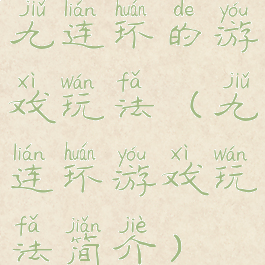 jiǔ lián huán de yóu
九连环的游
xì wán fǎ jiǔ
戏玩法（九
lián huán yóu xì wán
连环游戏玩
fǎ jiǎn jiè
法简介）